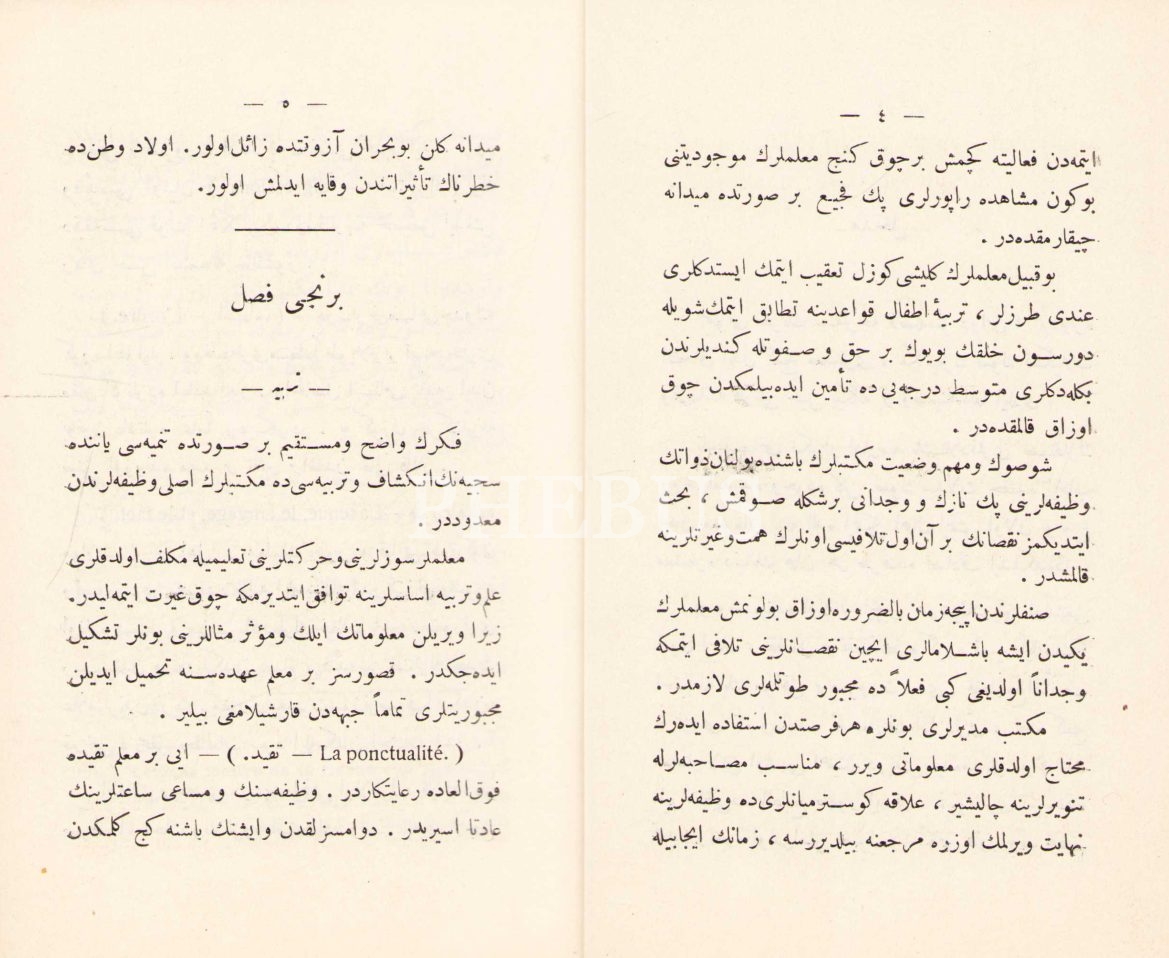 — ٤ —
ایتمه‌دن فعالیته کچمش برچوق کنج معلملرك موجودیتنی
بوکون مشاهده راپورلری پك فجیع بر صورتده میدانه
چیقارمقده‌در .
بوقبیل معلملرك کلیشی کوزل تعقیب ایتمك ایستدکلری
عندی طرزلر ، تربیهٔ اطفال قواعدینه تطابق ایتمك شویله
دورسون خلقك بویوك بر حق و صفوتله کندیلرندن
بکله‌دکلری متوسط درجه‌یی ده تأمین ایده‌بیلمکدن چوق
اوزاق قالمقده‌در .
شوصوك ومهم وضعیت مکتبلرك باشنده بولنان ذواتك
وظیفه‌لرینی پك نازك و وجدانی برشکله صوقمش ، بحث
ایتدیکمز نقصانك بر آن اول تلافیسی اونلرك همت وغیرتلرینه
قالمشدر .
صنفلرندن اییجه زمان بالضروره اوزاق بولونمش معلملرك
یکیدن ایشه باشلامالری ایچین نقصانلرینی تلافی ایتمکه
وجداناً اولدیغی کبی فعلاً ده مجبور طوتلمه‌لری لازمدر .
مکتب مدیرلری بونلره هرفرصتدن استفاده ایده‌رك
محتاج اولدقلری معلوماتی ویرر ، مناسب مصاحبه‌لرله
تنویرلرینه چالیشیر ، علاقه کوسترمیانلری ده وظیفه‌لرینه
نهایت ویرلمك اوزره مرجعنه بیلدیررسه ، زمانك ایجابیله
— ٥ —
میدانه کلن بوبحران آزوقتده زائل اولور. اولاد وطن ده
خطرناك تأثیراتندن وقایه ایدلمش اولور.
برنجی فصل
— تربیه —
فکرك واضح ومستقیم بر صورتده تنمیه‌سی یاننده
سجیه‌نك انکشاف وتربیه‌سی ده مکتبلرك اصلی وظیفه‌لرندن
معدوددر .
معلملر سوزلرینی وحرکتلرینی تعلیمیله مکلف اولدقلری
علم وتربیه اساسلرینه توافق ایتدیرمکه چوق غیرت ایتمه‌لیدر.
زیرا ویریلن معلوماتك ایلك ومؤثر مثاللرینی بونلر تشکیل
ایده‌جکدر . قصورسز بر معلم عهده‌سنه تحمیل ایدیلن
مجبوریتلری تماماً جبهه‌دن قارشیلامغی بیلیر .
( La ponctualité. — تقید. ) — ایی بر معلم تقیده
فوق‌العاده رعایتکاردر . وظیفه‌سنك و مساعی ساعتلرینك
عادتا اسیریدر . دوامسزلقدن وایشنك باشنه کج کلمکدن